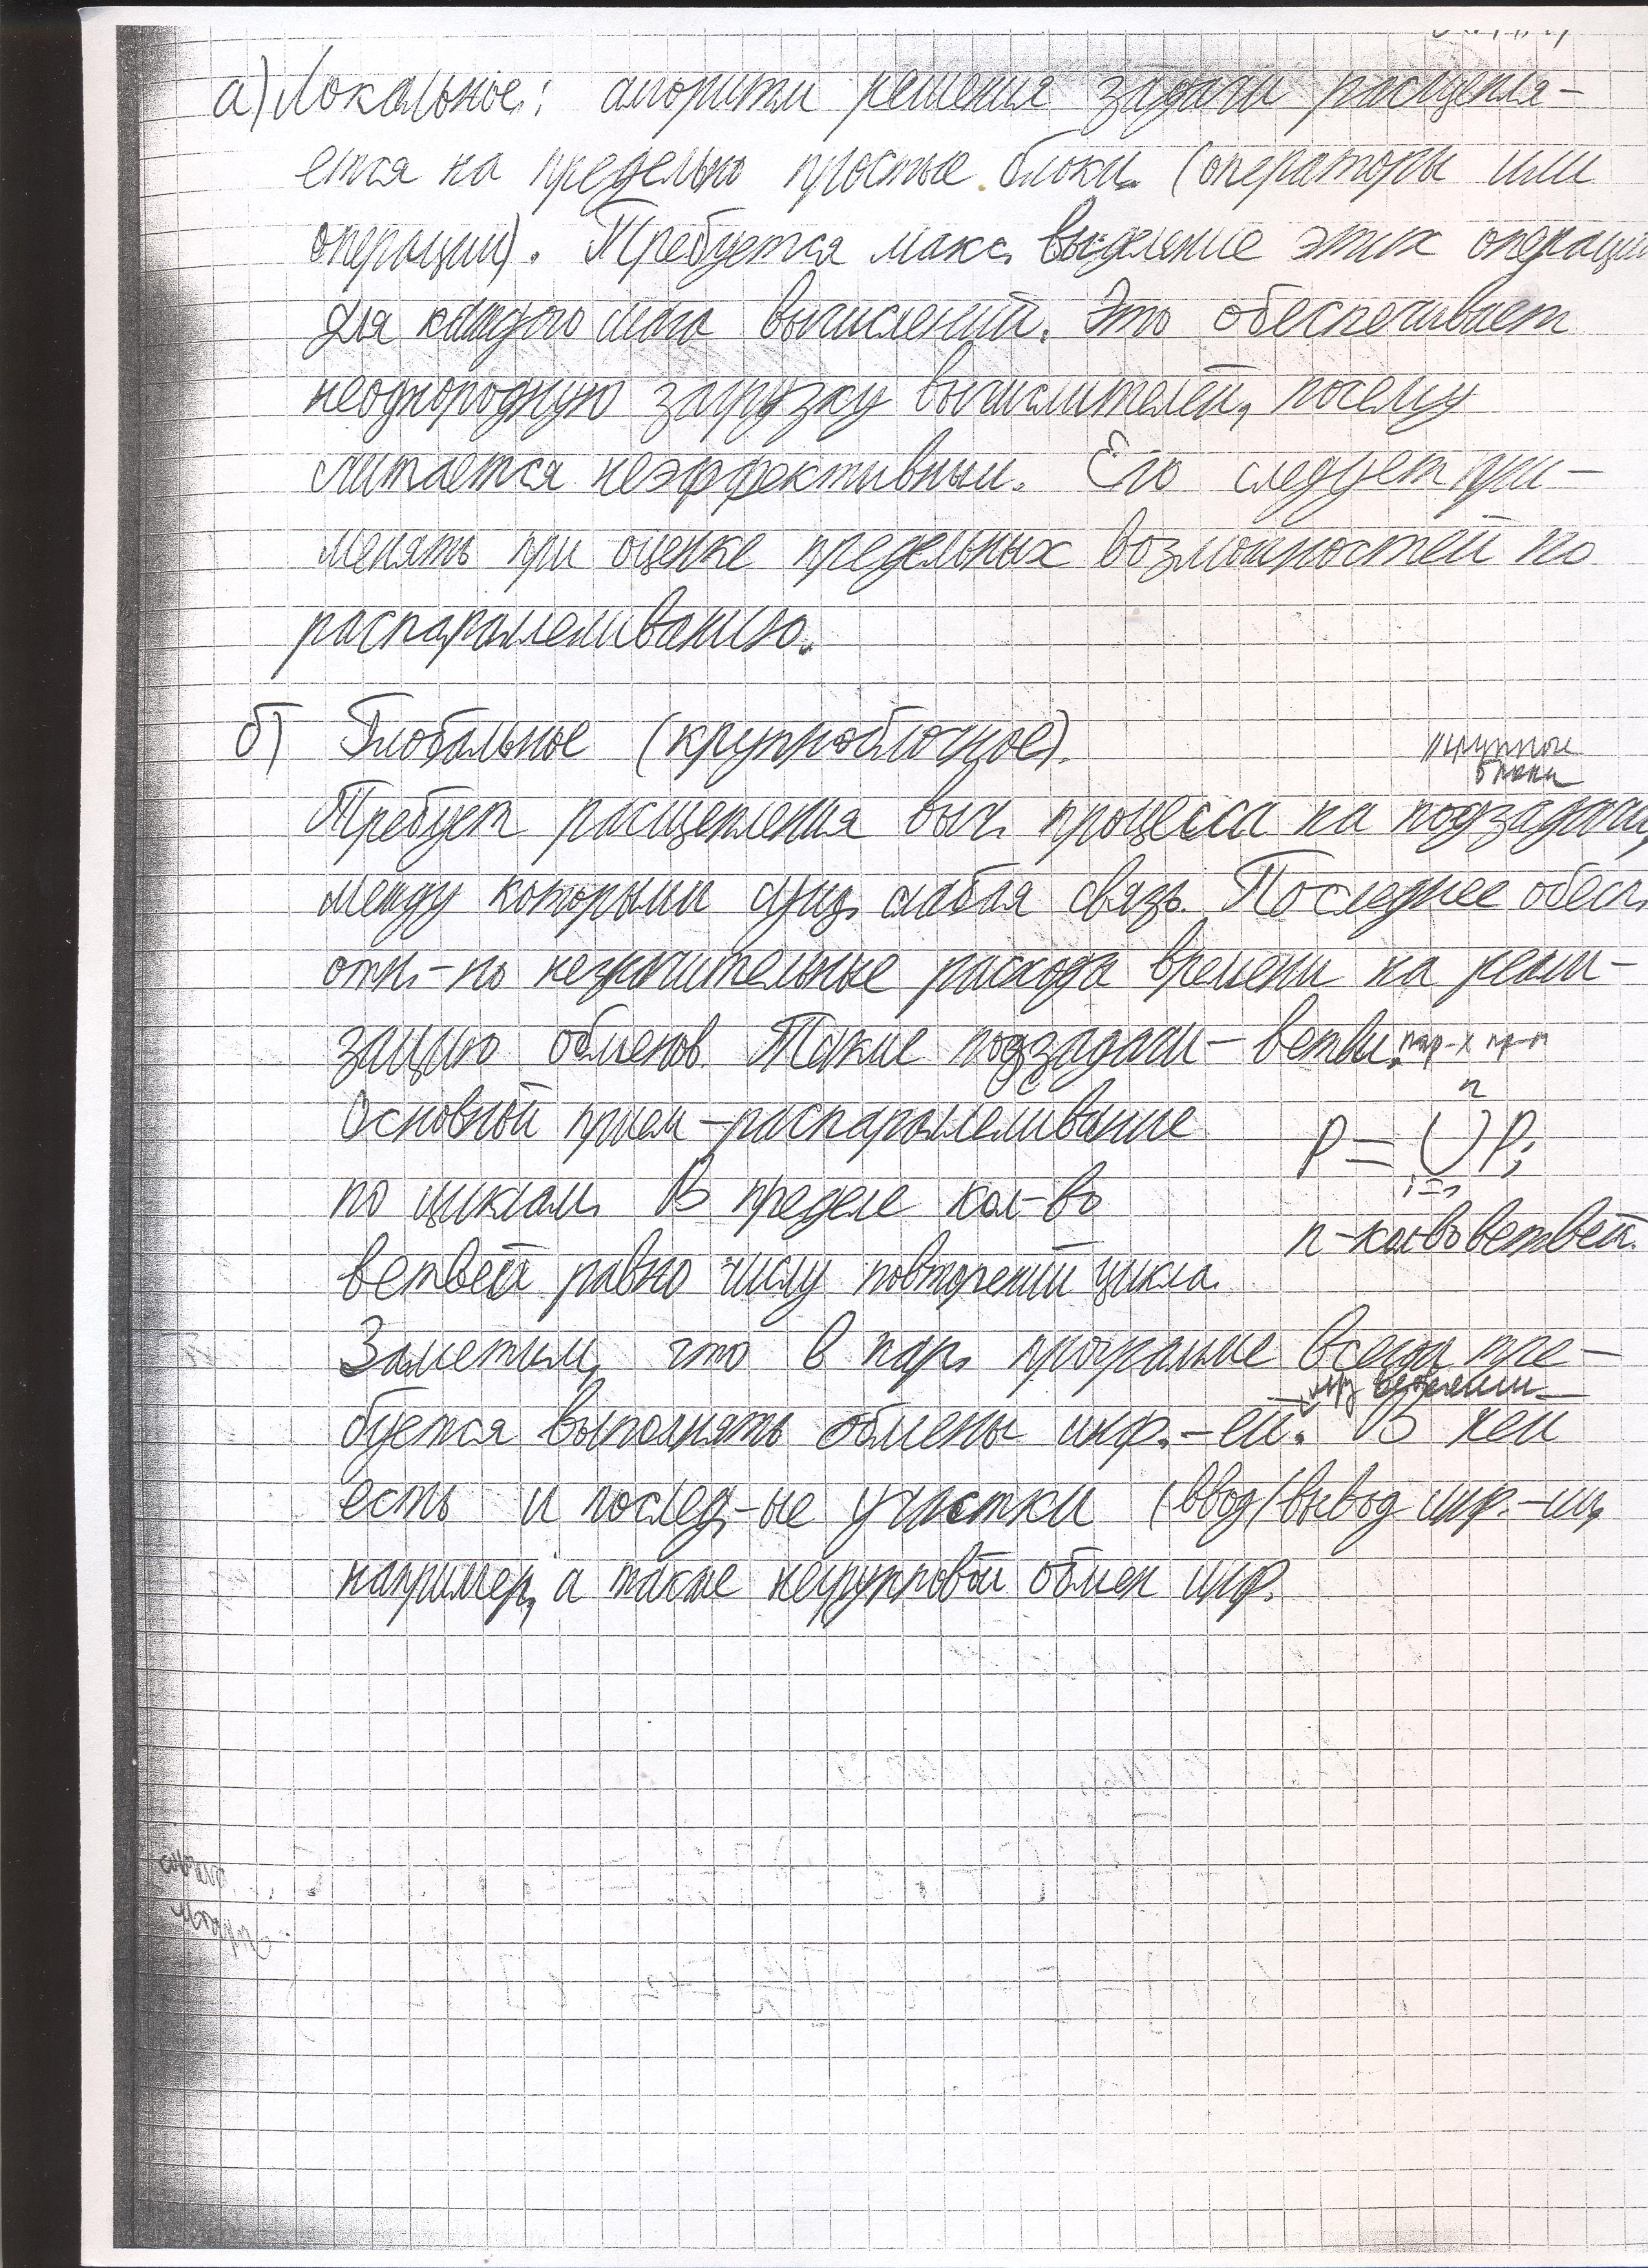 а) Локальное: алгоритм решения задачи расщепля-
ется на предельно простые блоки (операторы или
операции). Требуется макс. выделение этих операций
для каждого шага вычислений. Это обеспечивает
неоднородную загрузку вычислителей, посему
считается неэффективным. Его следует при-
менять при оценке предельных возможностей по
распараллеливанию.
б) Глобальное (крупноблочное).
крупные
блоки
Требует расщепления выч. процесса на подзадачи,
между которыми сущ. слабая связь. Последнее обесп.
отн.-но незначительные расходы времени на реали-
зацию обменов. Такие подзадачи - ветви пар-х пр-м
Основной прием - распараллеливание
по циклам. В пределе кол-во
ветвей равно числу повторений цикла.
n
P = ∪ Pi
i=1
n - кол-во ветвей.
Заметим, что в пар. программе всегда тре-
буется выполнять обмены инф.-ей. В ней
между ветвями
есть и послед-ые участки (ввод/вывод инф.-ии,
например, а также негрупповой обмен инф.